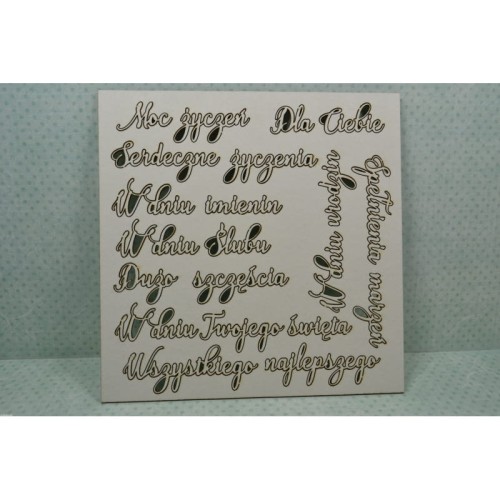 Moc życzeń
Dla Ciebie
Serdeczne życzenia
W dniu imienin
W dniu Ślubu
Dużo szczęścia
W dniu Twojego święta
Wszystkiego najlepszego
W dniu urodzin
Spełnienia marzeń